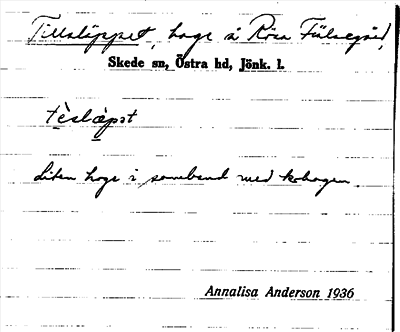 Tillsläppet, hage å Röra Fälsegård,
Skede sn, Östra hd, Jönk. l.
tèslæpət
Liten hage i samband med kohagen.
Annalisa Anderson 1936